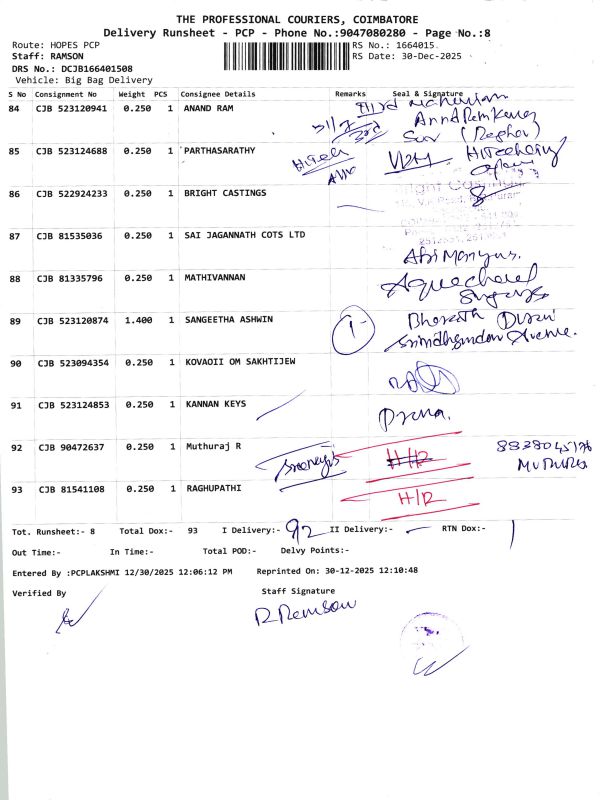 THE PROFESSIONAL COURIERS, COIMBATORE
Delivery Runsheet - PCP - Phone No.:9047080280 - Page No.:8
Route: HOPES PCP RS No.: 1664015
Staff: RAMSON RS Date: 30-Dec-2025
DRS No.: DCJB166401508
Vehicle: Big Bag Delivery
S No Consignment No Weight PCS Consignee Details Remarks Seal & Signature
84 CJB 523120941 0.250 1 ANAND RAM
85 CJB 523124688 0.250 1 PARTHASARATHY
86 CJB 522924233 0.250 1 BRIGHT CASTINGS
87 CJB 81535036 0.250 1 SAI JAGANNATH COTS LTD
88 CJB 81335796 0.250 1 MATHIVANNAN
89 CJB 523120874 1.400 1 SANGEETHA ASHWIN
Bharath
Avenue.
90 CJB 523094354 0.250 1 KOVAOII OM SAKHTIJEW
91 CJB 523124853 0.250 1 KANNAN KEYS
92 CJB 90472637 0.250 1 Muthuraj R H/R
93 CJB 81541108 0.250 1 RAGHUPATHI H/R
Tot. Runsheet:- 8 Total Dox:- 93 I Delivery:- 92 II Delivery:- RTN Dox:- 1
Out Time:- In Time:- Total POD:- Delvy Points:-
Entered By :PCPLAKSHMI 12/30/2025 12:06:12 PM Reprinted On: 30-12-2025 12:10:48
Verified By Staff Signature
R. Ramson